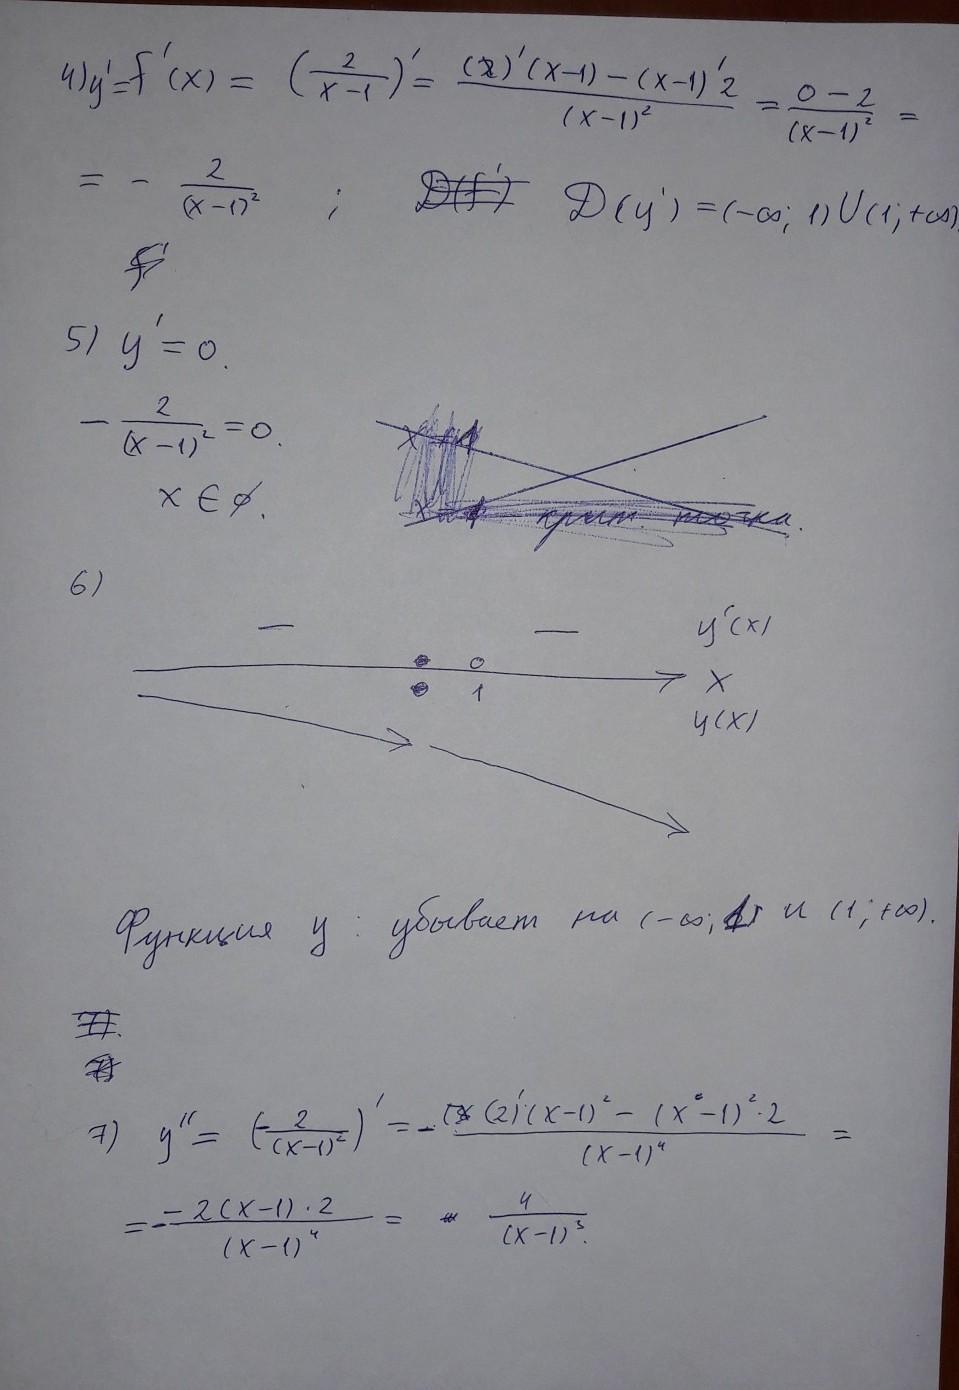 4) y' = f'(x) = (2/(x-1))' = ((2)'(x-1) - (x-1)'2)/(x-1)² = (0-2)/(x-1)² =
= - 2/(x-1)² ; D(f') D(y') = (-∞; 1) U (1; +∞).
f'
5) y' = 0.
- 2/(x-1)² = 0.
x ∈ ∅.
крит. точка.
6)
— — y'(x)
0
1 x
y(x)
Функция y : убывает на (-∞; 1) и (1; +∞).
7).
7)
7) y'' = (-2/(x-1)²)' = -((2)'(x-1)² - (x-1)²·2)/(x-1)⁴ =
= - (-2(x-1)·2)/(x-1)⁴ = 4/(x-1)³.